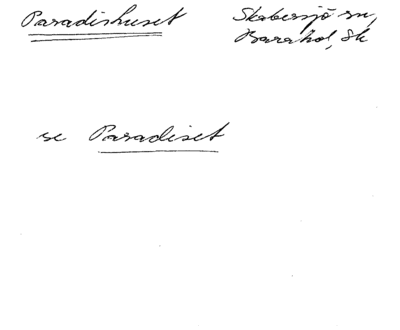 Paradishuset Skabersjö sn,
Bara hd, Sk
se Paradiset